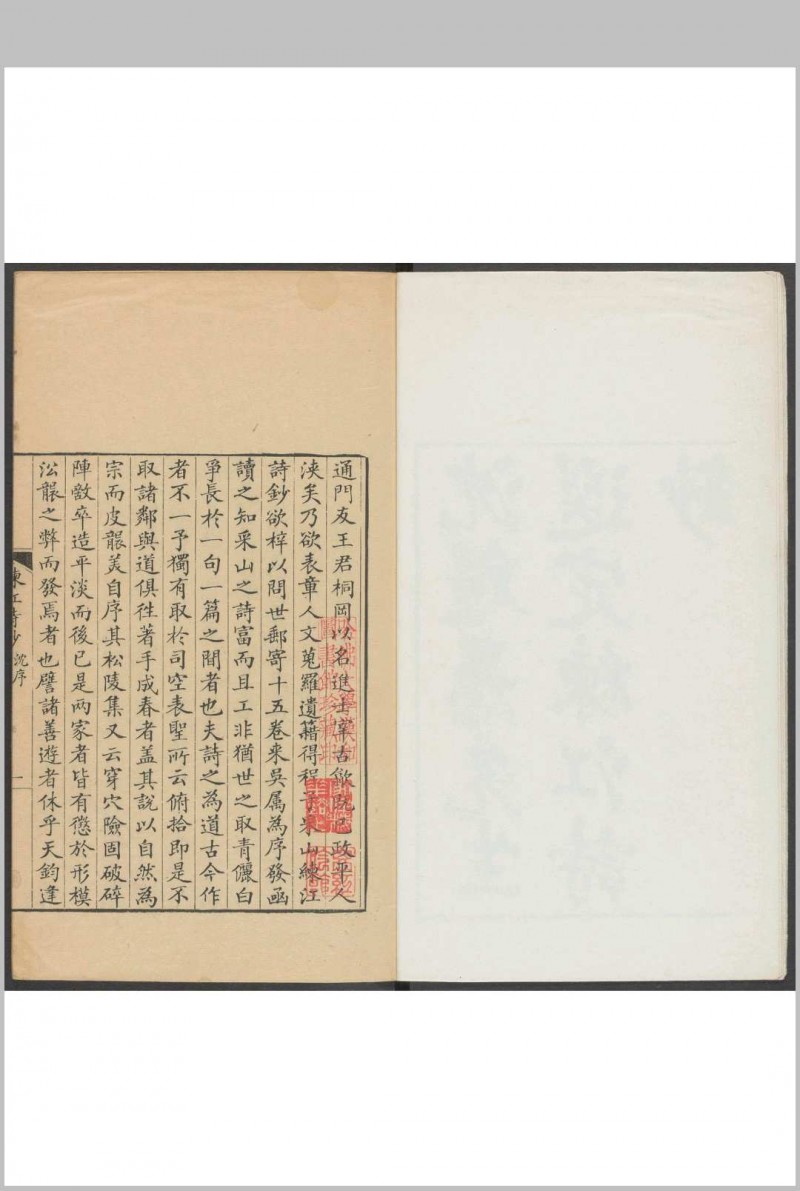 通門友王君桐岡以名進士宰古歙既已政平人
浹矣乃欲表章人文蒐羅遺籍得程子采山練江
詩鈔欲梓以問世郵寄十五卷来吳属為序發函
讀之知采山之詩富而且工非猶世之取青儷白
爭長於一句一篇之間者也夫詩之為道古今作
者不一予獨有取於司空表聖所云俯拾即是不
取諸鄰與道俱徃著手成春者盖其說以自然為
宗而皮襲美自序其松陵集又云穿穴險固破碎
陣敵卒造平淡而後已是兩家者皆有懲於形模
沿襲之弊而發焉者也譬諸善遊者休乎天鈞逢
江詩鈔 沈序 一